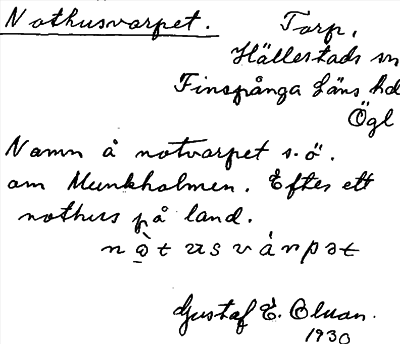 Nothusvarpet. Torp,
Hällestads sn
Finspånga läns hd
Ögl
Namn å notvarpet s.ö.
om Munkholmen. Efter ett
nothus på land.
Gustaf E.
1930